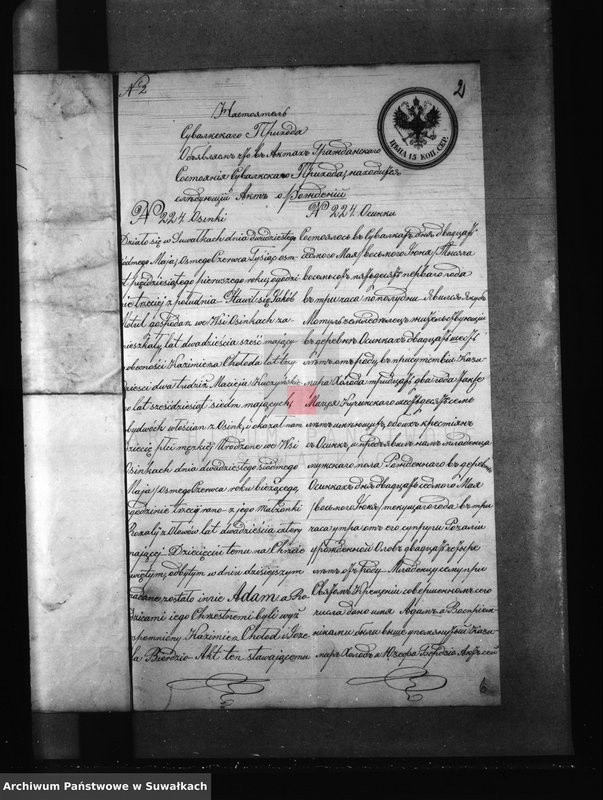 № 2
2
ЦѢНА 15 КОП. СЕР.
Настоятель
Сувалкскаго Прихода
Объявляетъ что въ Актахъ Гражданскаго
Состоянія Сувалкскаго Прихода, находится
слѣдующій Актъ о рожденій
№ 224 Osinki
Działo się w Suwałkach dnia dwudziestego
siódmego Maja/ósmego Czerwca tysiąc ośm-
set pięćdziesiątego pierwszego roku, o godzi
nie trzeciej z południa Stawił się Jakób
Motul gospodarz we Wsi Osinkach za
mieszkały lat dwadzieścia sześć mający
w obecności Kazimierza Chołoda lat trzy
dzieści dwa tudzież Macieja Kuczyńskie
go lat sześćdziesiąt siedm mających
obydwóch włościan z Osink, i okazał nam
dziecię płci męzkiej Urodzone we Wsi
Osinkach dnia dwudziestego siódmego
Maja/ósmego Czerwca roku bieżącego,
o godzinie trzeciej rano z jego małżonki
Rozalij z Ołowów lat dwadzieścia cztery
mającej. Dziecięciu temu na Chrzcie
świętym, odbytym w dniu dzisiejszym
nadane zostało imie Adam a Ro
dzicami jego Chrzestnemi byli wyż
wspomniony Kazimierz Chołod i Józe
fa Bierdzio Akt ten stawającemu
№ 224. Осинки
Состоялось въ Сувалкахъ дня двадцать
седьмаго Мая/восьмаго Іюня/тысяча
восьмьсотъ пятьдесятъ перваго года
въ три часа по полудни Явился Якубъ
Мотуль земледѣлецъ жительствующій
въ деревнѣ Осинкахъ двадцать шесть
лѣтъ отъ роду въ присутствіи Кази
мира Холода тридцать два года также
Мацея Кучинскаго шестьдесятъ семь
лѣтъ имѣющихъ, обоихъ крестьянъ
съ Осинкъ, и предъявилъ намъ младенца
мужскаго пола Рожденнаго въ деревнѣ
Осинкахъ дня двадцать седьмаго Мая
/восьмаго Іюня/ текущаго года въ три
часа утра отъ его супруги Розаліи
урожденной Оловъ двадцать четыре
лѣтъ отъ роду Младенцу сему при
Святомъ Крещеніи совершенномъ сего
числа дано имя Адамъ а Воспріем
никами были выше упомянутый Кази
миръ Холодъ и Юзефа Бердзіо Актъ сей
Archiwum Państwowe w Suwałkach